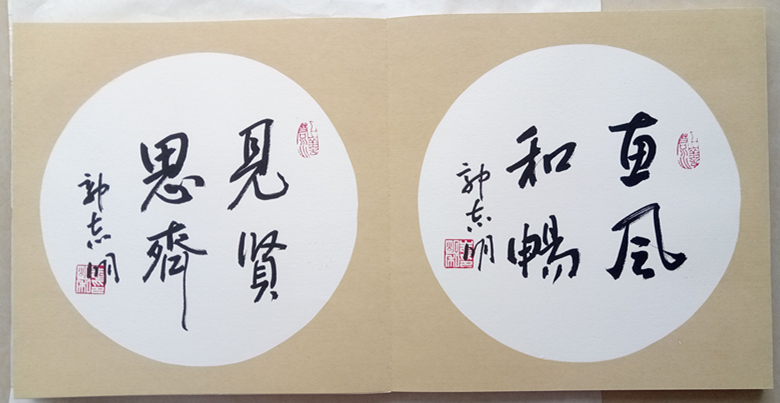 惠風
和暢
郭志明
見賢
思齊
郭志明